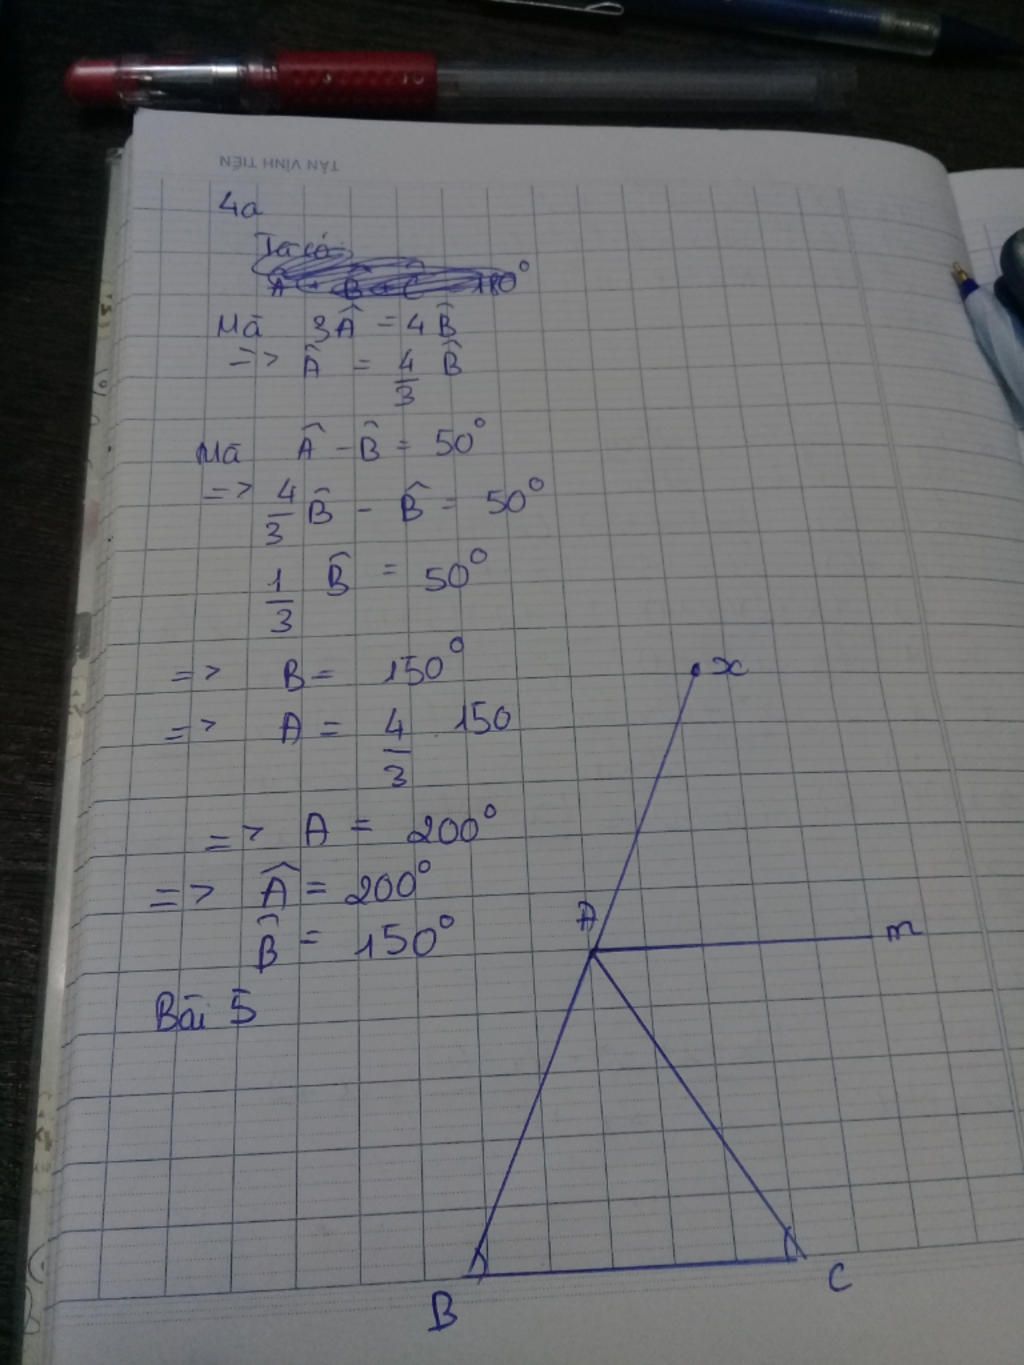 TÂN VĨNH TIẾN
4a
Ta có
A + B + C = 180°
Mà 3Â = 4B̂
=> Â = 4/3 B̂
Mà Â - B̂ = 50°
=> 4/3 B̂ - B̂ = 50°
1/3 B̂ = 50°
=> B = 150°
=> A = 4/3 150
=> A = 200°
=> Â = 200°
B̂ = 150°
Bài 5
x
A
m
B
C